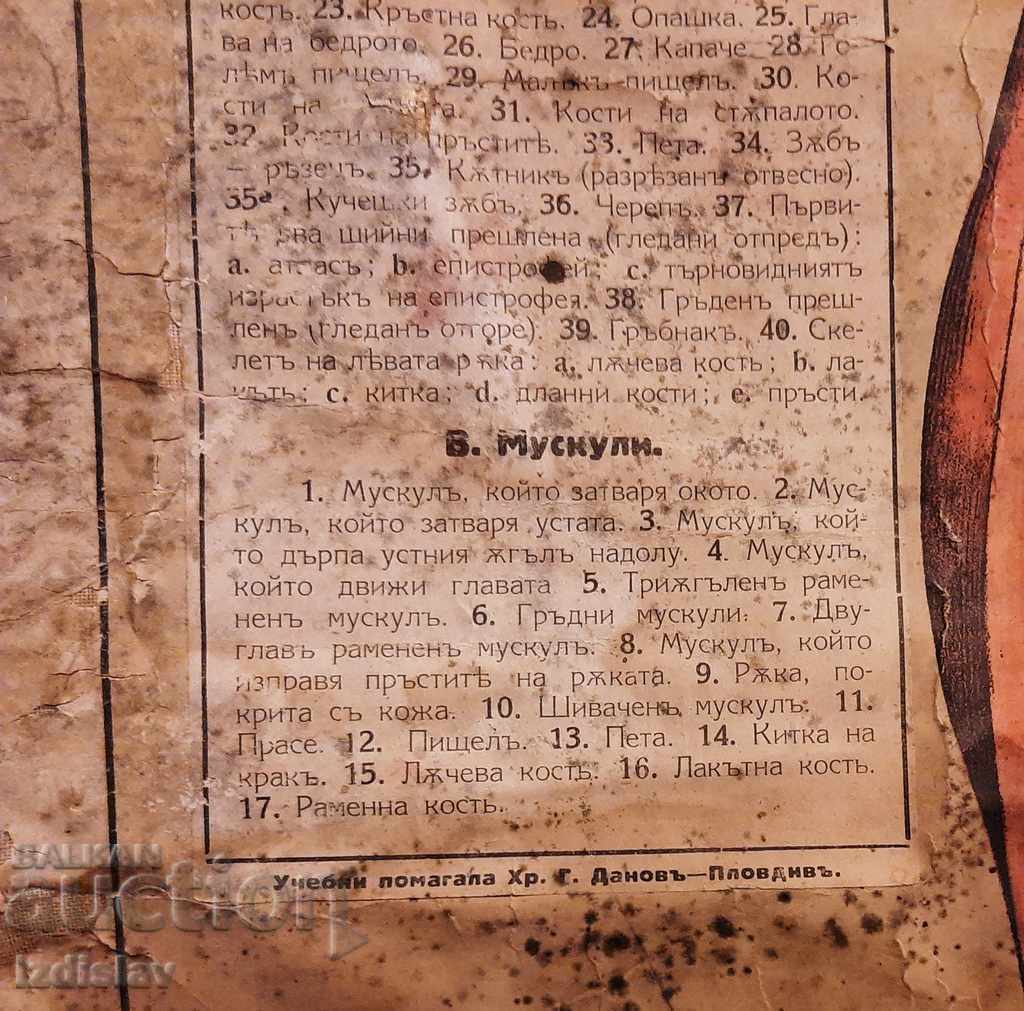 кость. 23. Кръстна кость. 24. Опашка. 25. Гла-
ва на бедрото. 26. Бедро. 27. Капаче. 28. Го-
лѣмъ пищелъ. 29. Малъкъ пищелъ. 30. Ко-
сти на 31. Кости на стѫпалото.
32. Кости на пръститѣ. 33. Пета. 34. Зѫбъ
— рѣзецъ. 35. Кѫтникъ (разрѣзанъ отвесно).
35а. Кучешки зѫбъ. 36. Черепъ. 37. Първи-
тѣ два шийни прешлена (гледани отпредъ):
a. атласъ; b. епистрофей; c. търновидниятъ
израстъкъ на епистрофея. 38. Гръденъ преш-
ленъ (гледанъ отгоре). 39. Гръбнакъ. 40. Ске-
летъ на лѣвата рѫка: a. лѫчева кость; b. ла-
кътъ; c. китка; d. дланни кости; e. пръсти.
Б. Мускули.
1. Мускулъ, който затваря окото. 2. Мус-
кулъ, който затваря устата. 3. Мускулъ, кой-
то дърпа устния ѫгълъ надолу. 4. Мускулъ,
който движи главата 5. Триѫгъленъ раме-
ненъ мускулъ. 6. Гръдни мускули. 7. Дву-
главъ рамененъ мускулъ. 8. Мускулъ, който
изправя пръститѣ на рѫката. 9. Рѫка, по-
крита съ кожа. 10. Шиваченъ мускулъ. 11.
Прасе. 12. Пищелъ. 13. Пета. 14. Китка на
кракъ. 15. Лѫчева кость. 16. Лакътна кость.
17. Раменна кость.
Учебни помагала Хр. Г. Дановъ—Пловдивъ.
BALKAN
auction
Izdislav